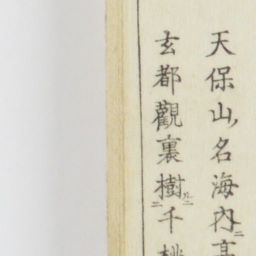 天保山名海内
玄都觀裏樹千桃